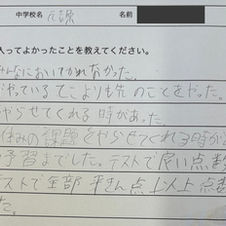 中学校名 元塚 名前
入ってよかったことを教えてください。
みんなにおいてかれなかった。
やっているてこよりも先のことをやった。
やらせてくれる時があった。
休みの課題をやらせてくれる時が
予習までした。テストで高い点数
テストで全部平きん点以上点数
た。